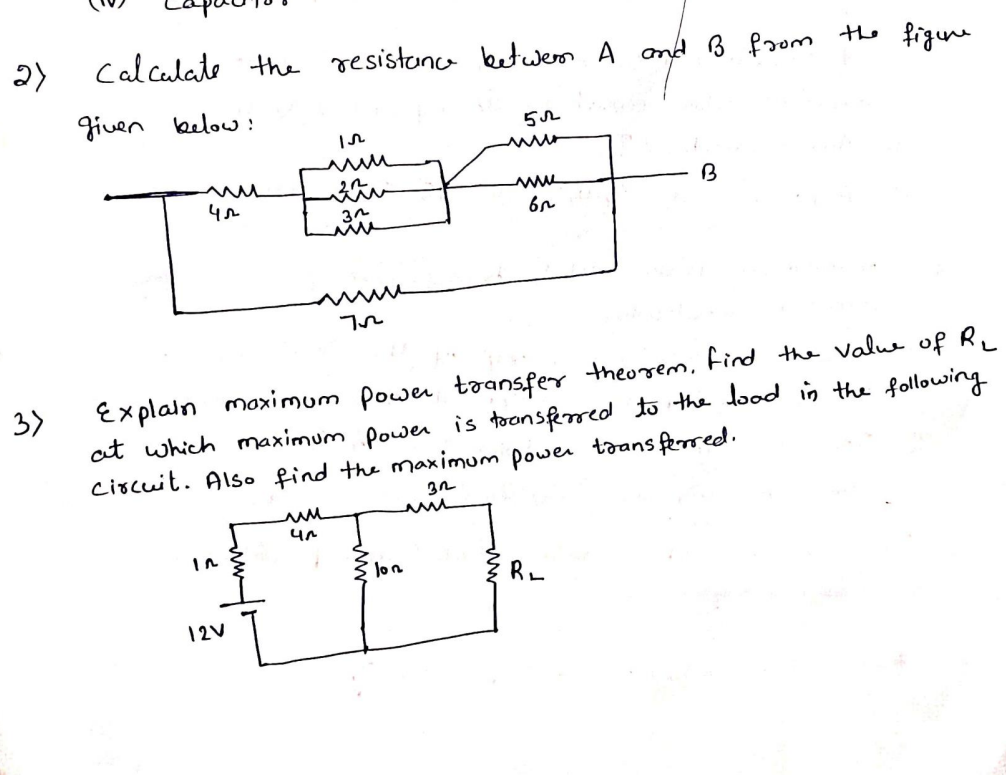 2) Calculate the resistance between A and B from the figure
given below:
1Ω
5Ω
2Ω
B
4Ω
3Ω
6Ω
7Ω
3) Explain maximum power transfer theorem. find the value of RL
at which maximum power is transferred to the load in the following
circuit. Also find the maximum power transferred.
3Ω
4Ω
1Ω
10Ω
RL
12V